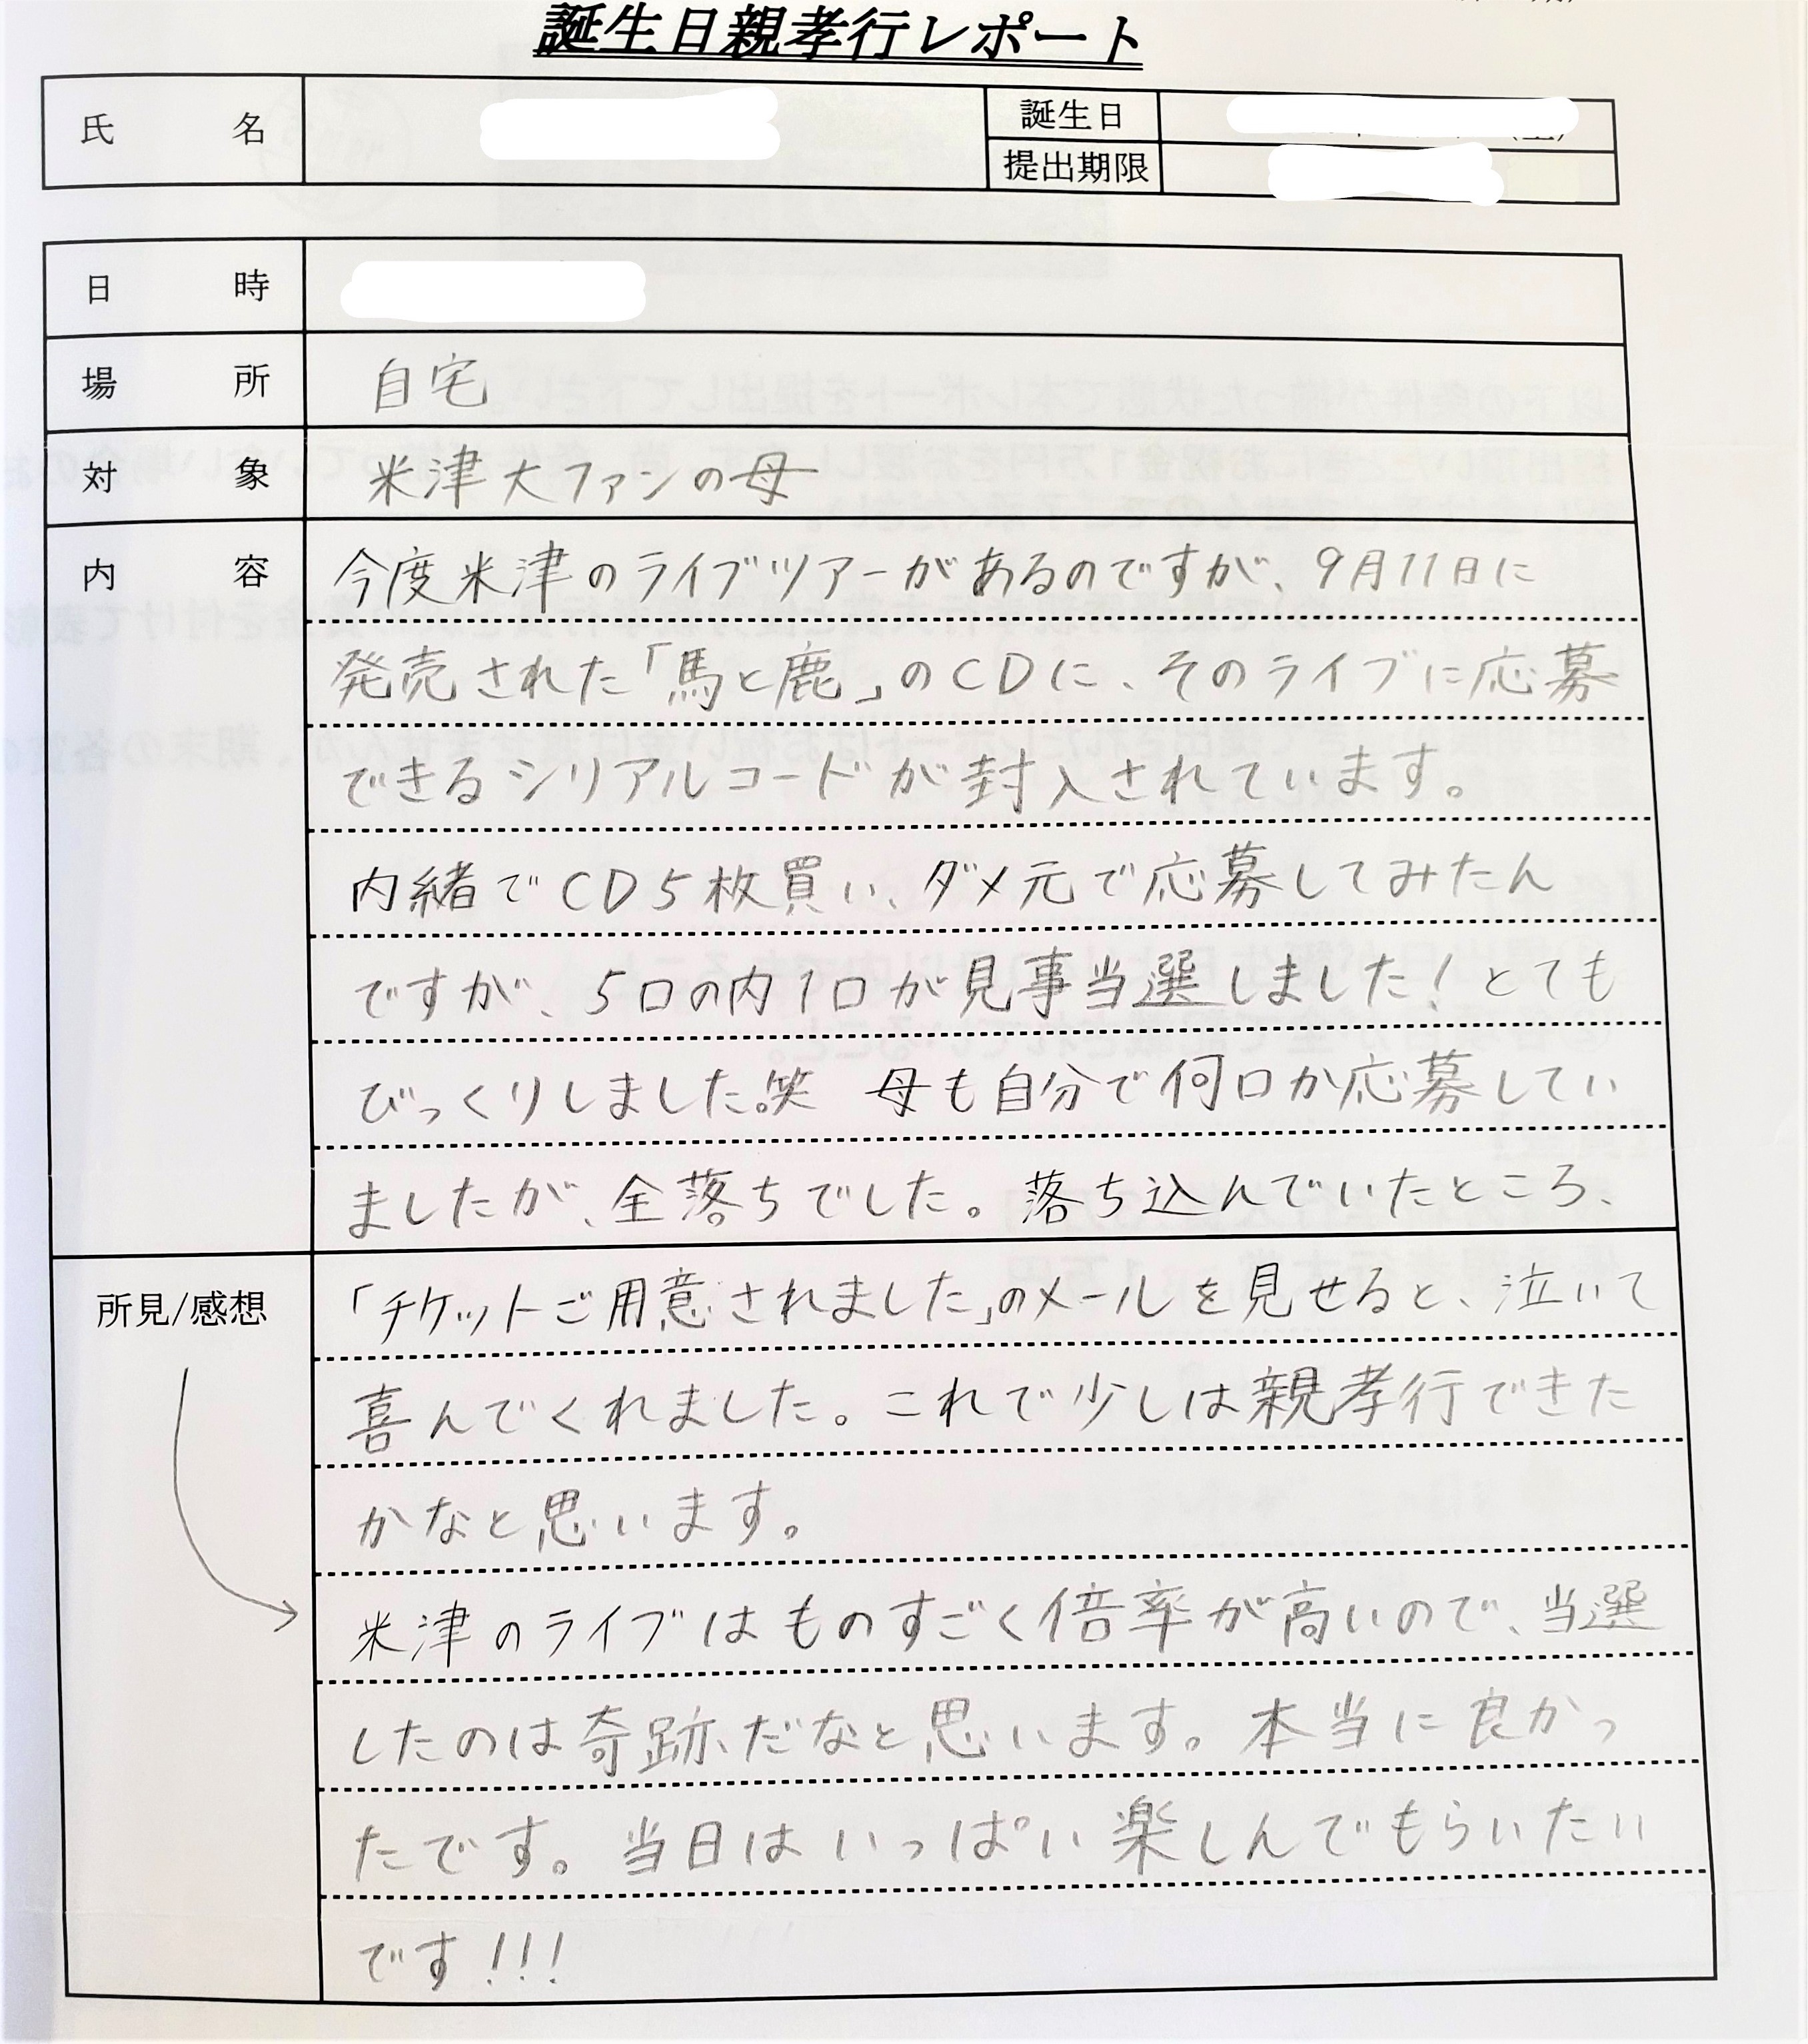 誕生日親孝行レポート
氏名
誕生日
提出期限
日時
場所 自宅
対象 米津大ファンの母
内容 今度米津のライブツアーがあるのですが、9月11日に
発売された「馬と鹿」のCDに、そのライブに応募
できるシリアルコードが封入されています。
内緒でCD5枚買い、ダメ元で応募してみたん
ですが、5口の内1口が見事当選しました!とても
びっくりしました。笑 母も自分で何口か応募してい
ましたが、全落ちでした。落ち込んでいたところ、
所見/感想 「チケットご用意されました」のメールを見せると、泣いて
喜んでくれました。これで少しは親孝行できた
かなと思います。
米津のライブはものすごく倍率が高いので、当選
したのは奇跡だなと思います。本当に良かっ
たです。当日はいっぱい楽しんでもらいたい
です!!!